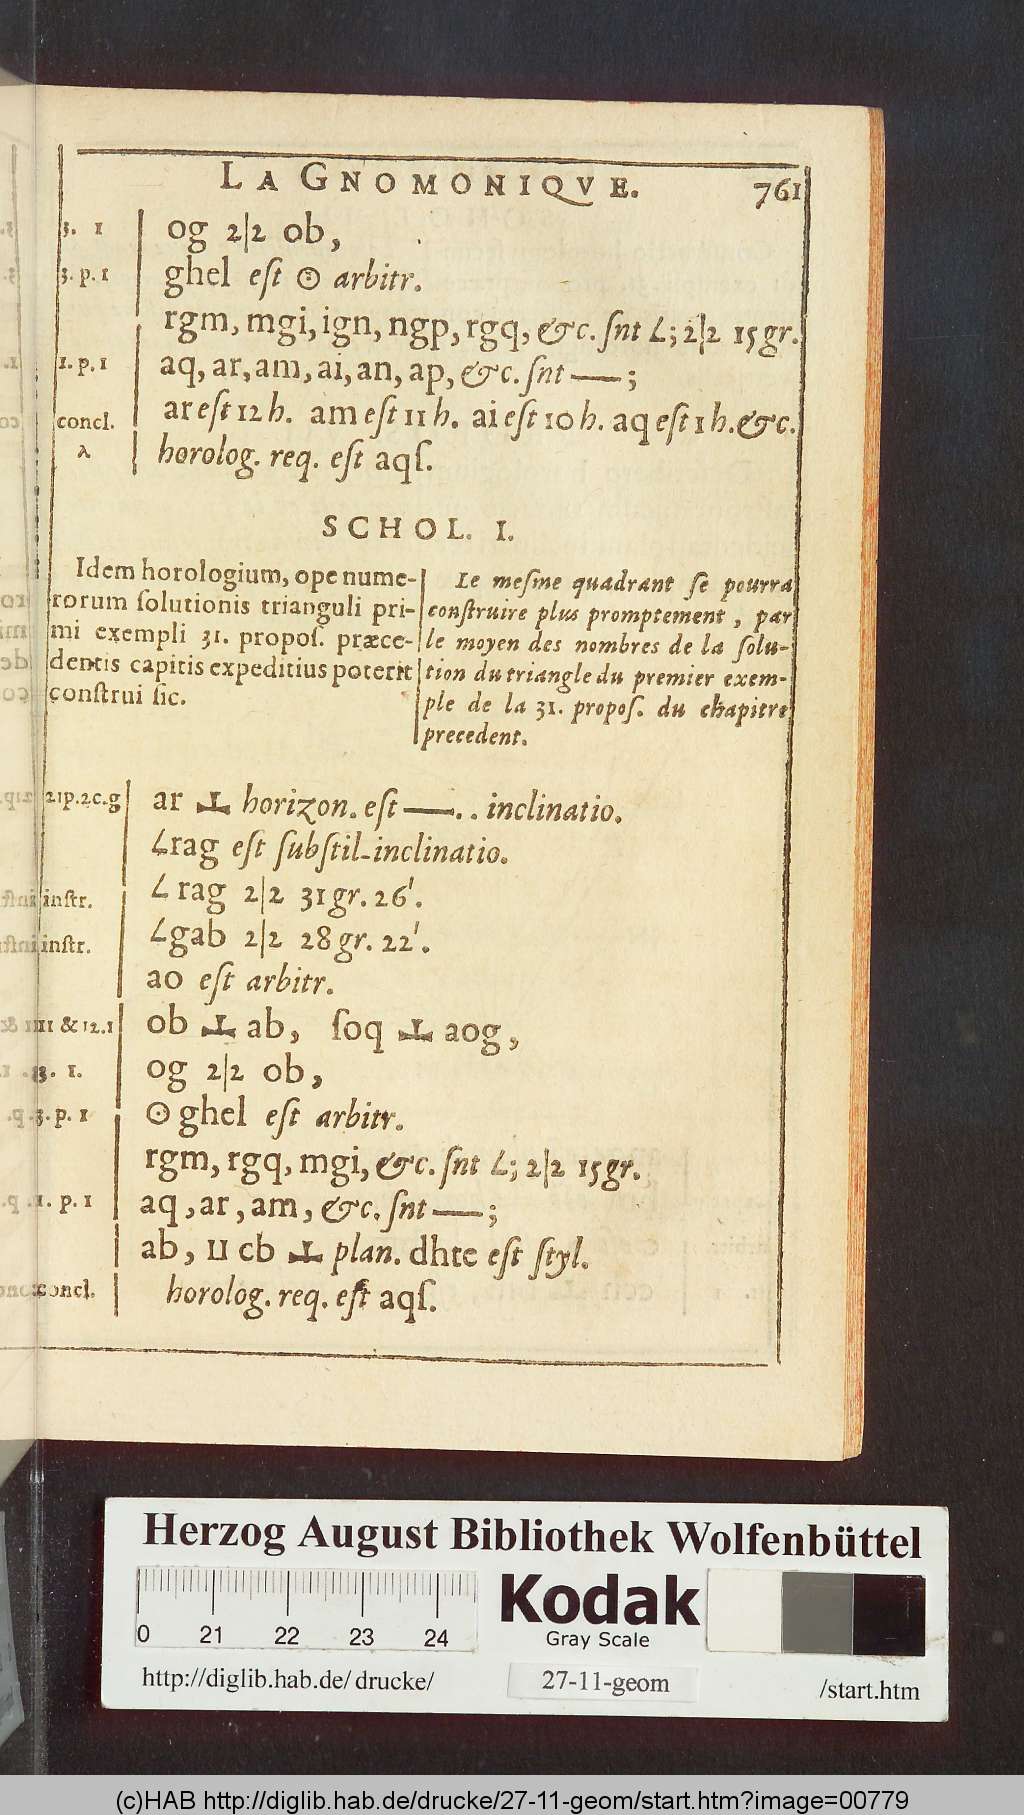 LA GNOMONIQVE. 761
3. 1 og 2|2 ob,
3. p. 1 ghel eſt ☉ arbitr.
rgm, mgi, ign, ngp, rgq, &c. ſnt ∠; 2|2 15 gr.
1. p. 1 aq, ar, am, ai, an, ap, &c. ſnt —;
concl. ar eſt 12 h. am eſt 11 h. ai eſt 10 h. aq eſt 1 h. &c.
λ horolog. req. eſt aqſ.
SCHOL. I.
Idem horologium, ope nume-
rorum ſolutionis trianguli pri-
mi exempli 31. propoſ. præce-
dentis capitis expeditius poterit
conſtrui ſic.
Le meſme quadrant ſe pourra
conſtruire plus promptement, par
le moyen des nombres de la ſolu-
tion du triangle du premier exem-
ple de la 31. propoſ. du chapitre
precedent.
21p.2c.g ar ⊥ horizon. eſt —.. inclinatio.
∠rag eſt ſubſtil-inclinatio.
inſtr. ∠ rag 2|2 31 gr. 26'.
inſtr. ∠gab 2|2 28 gr. 22'.
ao eſt arbitr.
11 & 12.1 ob ⊥ ab, ſoq ⊥ aog,
3. 1. og 2|2 ob,
3. p. 1 ☉ ghel eſt arbitr.
rgm, rgq, mgi, &c. ſnt ∠; 2|2 15 gr.
1. p. 1 aq, ar, am, &c. ſnt —;
ab, II cb ⊥ plan. dhte eſt ſtyl.
concl. horolog. req. eſt aqſ.
Herzog August Bibliothek Wolfenbüttel
Kodak
Gray Scale
0 21 22 23 24
http://diglib.hab.de/ drucke/ 27-11-geom /start.htm
(c)HAB http://diglib.hab.de/drucke/27-11-geom/start.htm?image=00779